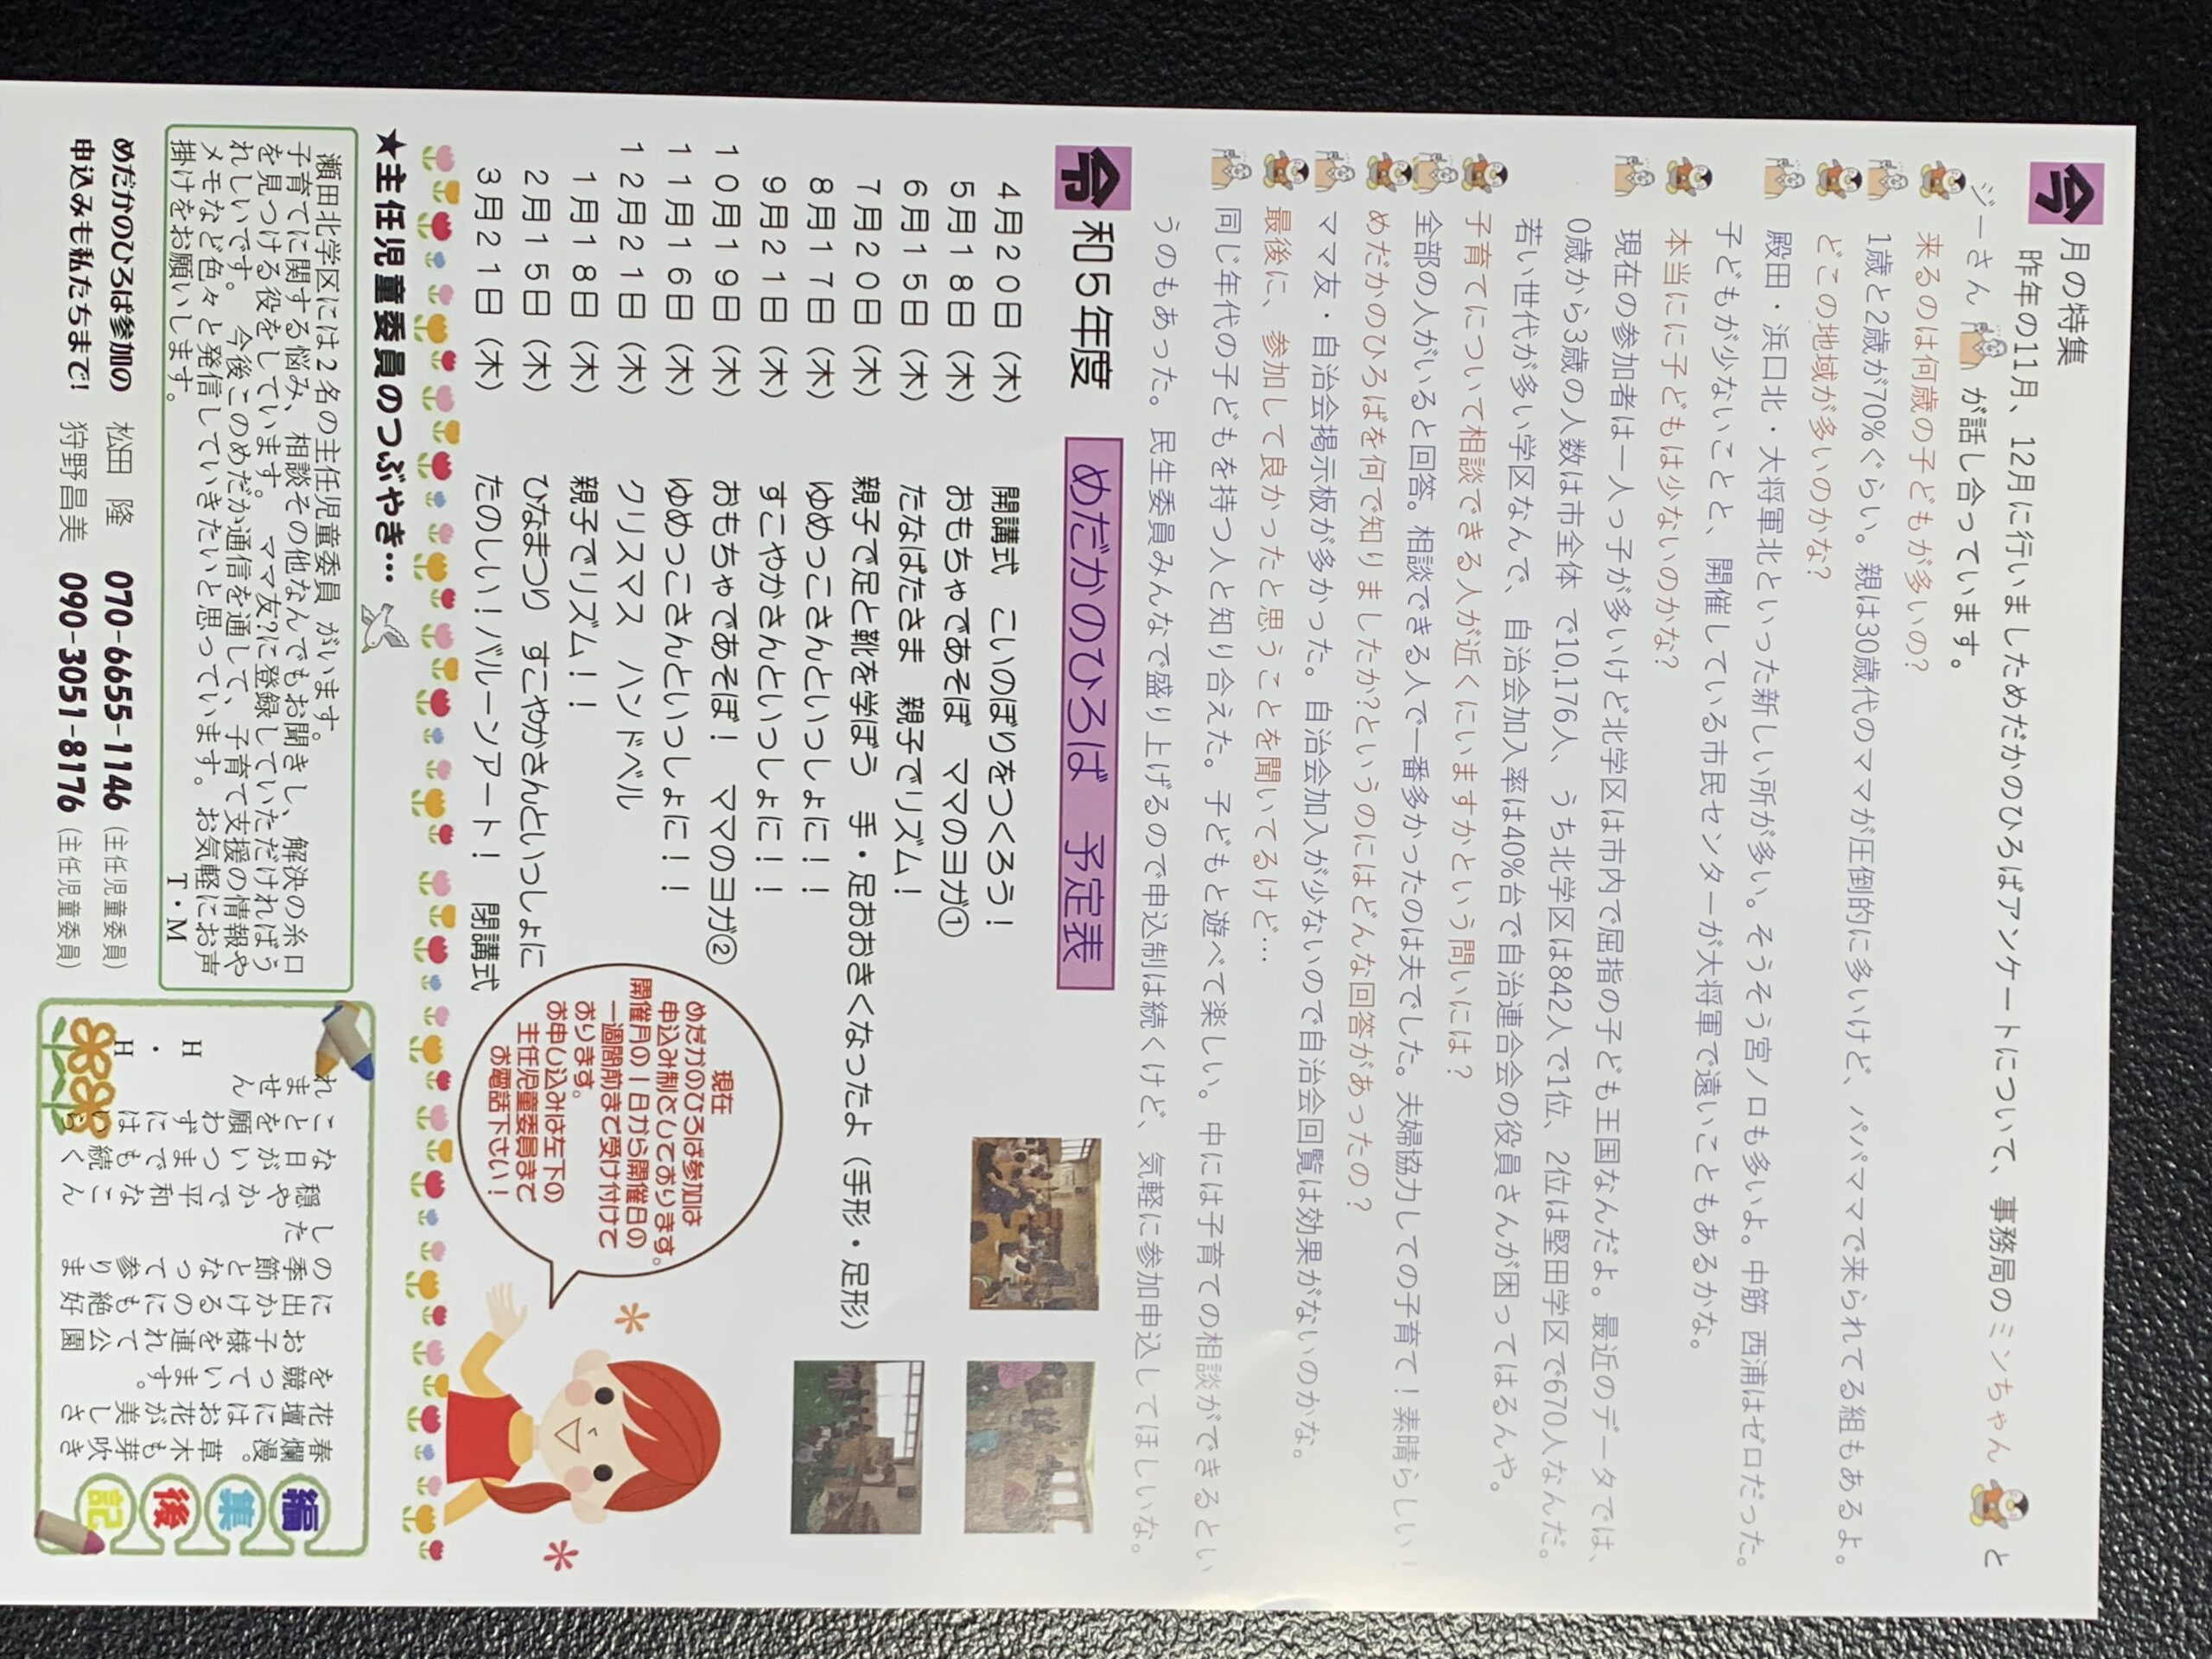 今月の特集
昨年の11月、12月に行いましためだかのひろばアンケートについて、事務局のミンちゃんと
ジーさんが話し合っています。
来るのは何歳の子どもが多いの?
1歳と2歳が70%ぐらい。親は30歳代のママが圧倒的に多いけど、パパママで来られてる組もあるよ。
どこの地域が多いのかな?
殿田・浜口北・大将軍北といった新しい所が多い。そうそう宮ノ口も多いよ。中筋 西浦はゼロだった。
子どもが少ないことと、開催している市民センターが大将軍で遠いこともあるかな。
本当にに子どもは少ないのかな?
現在の参加者は一人っ子が多いけど北学区は市内で屈指の子ども王国なんだよ。最近のデータでは、
0歳から3歳の人数は市全体 で10,176人、うち北学区は842人で1位、2位は堅田学区で670人なんだ。
若い世代が多い学区なんで、自治会加入率は40%台で自治連合会の役員さんが困ってはるんや。
子育てについて相談できる人が近くにいますかという問いには?
全部の人がいると回答。相談できる人で一番多かったのは夫でした。夫婦協力しての子育て!素晴らしい!
めだかのひろばを何で知りましたか?というのにはどんな回答があったの?
ママ友・自治会掲示板が多かった。自治会加入が少ないので自治会回覧は効果がないのかな。
最後に、参加して良かったと思うことを聞いてるけど…
同じ年代の子どもを持つ人と知り合えた。子どもと遊べて楽しい。中には子育ての相談ができるとい
うのもあった。民生委員みんなで盛り上げるので申込制は続くけど、気軽に参加申込してほしいな。
令和5年度 めだかのひろば 予定表
4月20日（木） 開講式 こいのぼりをつくろう!
5月18日（木） おもちゃであそぼ ママのヨガ①
6月15日（木） たなばたさま 親子でリズム!
7月20日（木） 親子で足と靴を学ぼう 手・足おおきくなったよ（手形・足形）
8月17日（木） ゆめっこさんといっしょに!!
9月21日（木） すこやかさんといっしょに!!
10月19日（木） おもちゃであそぼ! ママのヨガ②
11月16日（木） ゆめっこさんといっしょに!!
12月21日（木） クリスマス ハンドベル
1月18日（木） 親子でリズム!!
2月15日（木） ひなまつり すこやかさんといっしょに
3月21日（木） たのしい!バルーンアート! 閉講式
現在
めだかのひろば参加は
申込み制としております。
開催月の1日から開催日の
一週間前まで受け付けて
おります。
お申し込みは左下の
主任児童委員まで
お電話下さい!
★主任児童委員のつぶやき…
瀬田北学区には2名の主任児童委員 がいます。
子育てに関する悩み、相談その他なんでもお聞きし、解決の糸口
を見つける役をしています。 ママ友?に登録していただければう
れしいです。 今後このめだか通信を通して、子育て支援の情報や
メモなど色々と発信していきたいと思っています。お気軽にお声
掛けをお願いします。 T・M
めだかのひろば参加の 松田 隆 070-6655-1146（主任児童委員）
申込みも私たちまで! 狩野昌美 090-3051-8176（主任児童委員）
編集後記
春爛漫。草木も芽吹き
花壇にはお花が美しさ
を競っています。
お子様を連れて公園
に出かけるのにも絶好
の季節となって参りま
した
穏やかで平和なこん
な日がいつまでも続く
ことを願わずにはいら
れません
H・H